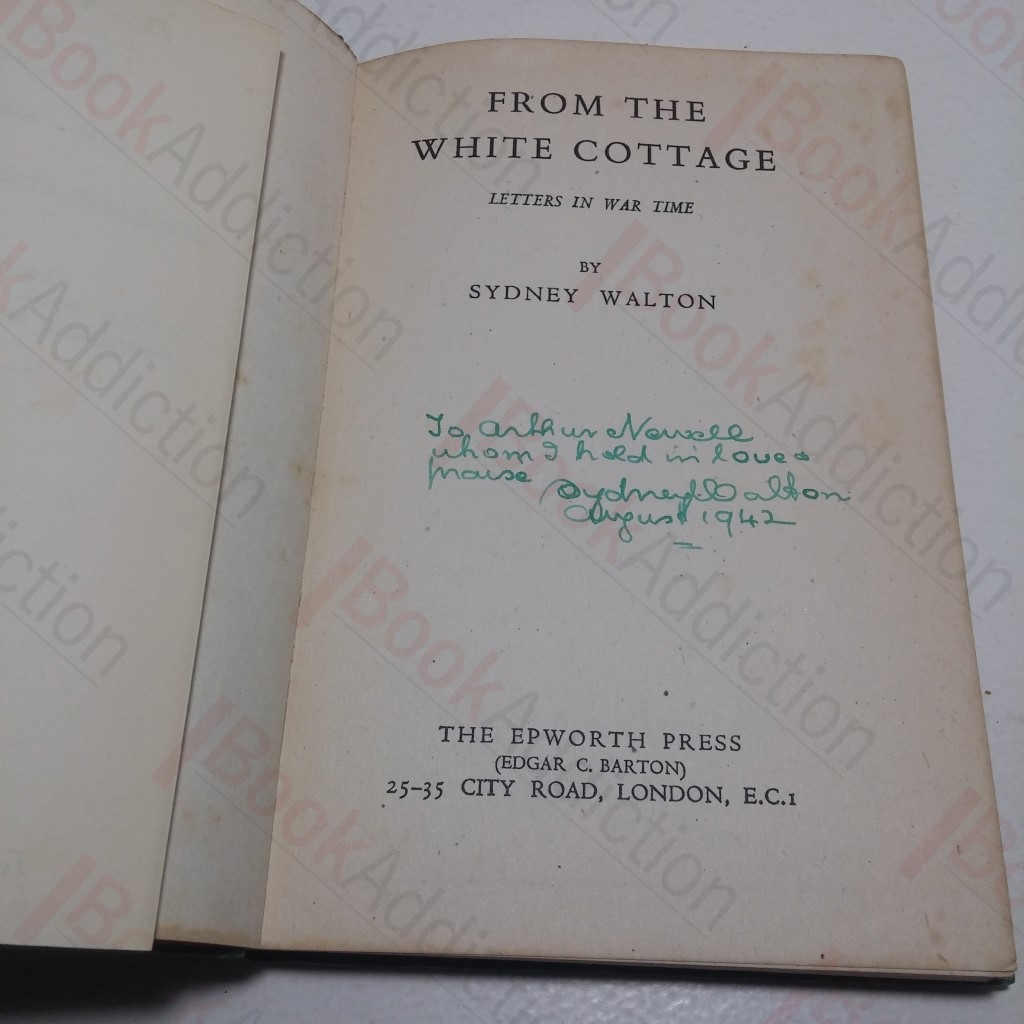 FROM THE
WHITE COTTAGE
LETTERS IN WAR TIME
BY
SYDNEY WALTON
To Arthur Newell
whom I hold in love &
praise Sydney Walton
August 1942
THE EPWORTH PRESS
(EDGAR C. BARTON)
25-35 CITY ROAD, LONDON, E.C.1
BookAddiction